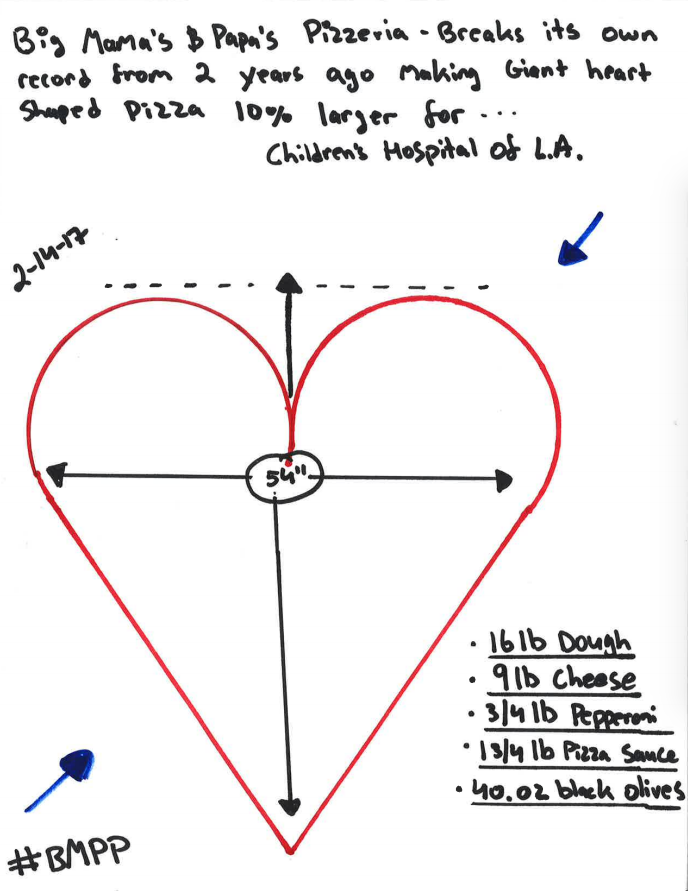 Big Mama's & Papa's Pizzeria - Breaks its own
record from 2 years ago making Giant heart
Shaped Pizza 10% larger for ...
Children's Hospital of L.A.
2-14-17
54"
· 16 lb Dough
· 9 lb Cheese
· 3/4 lb Pepperoni
· 1 3/4 lb Pizza Sauce
· 40.oz black olives
#BMPP